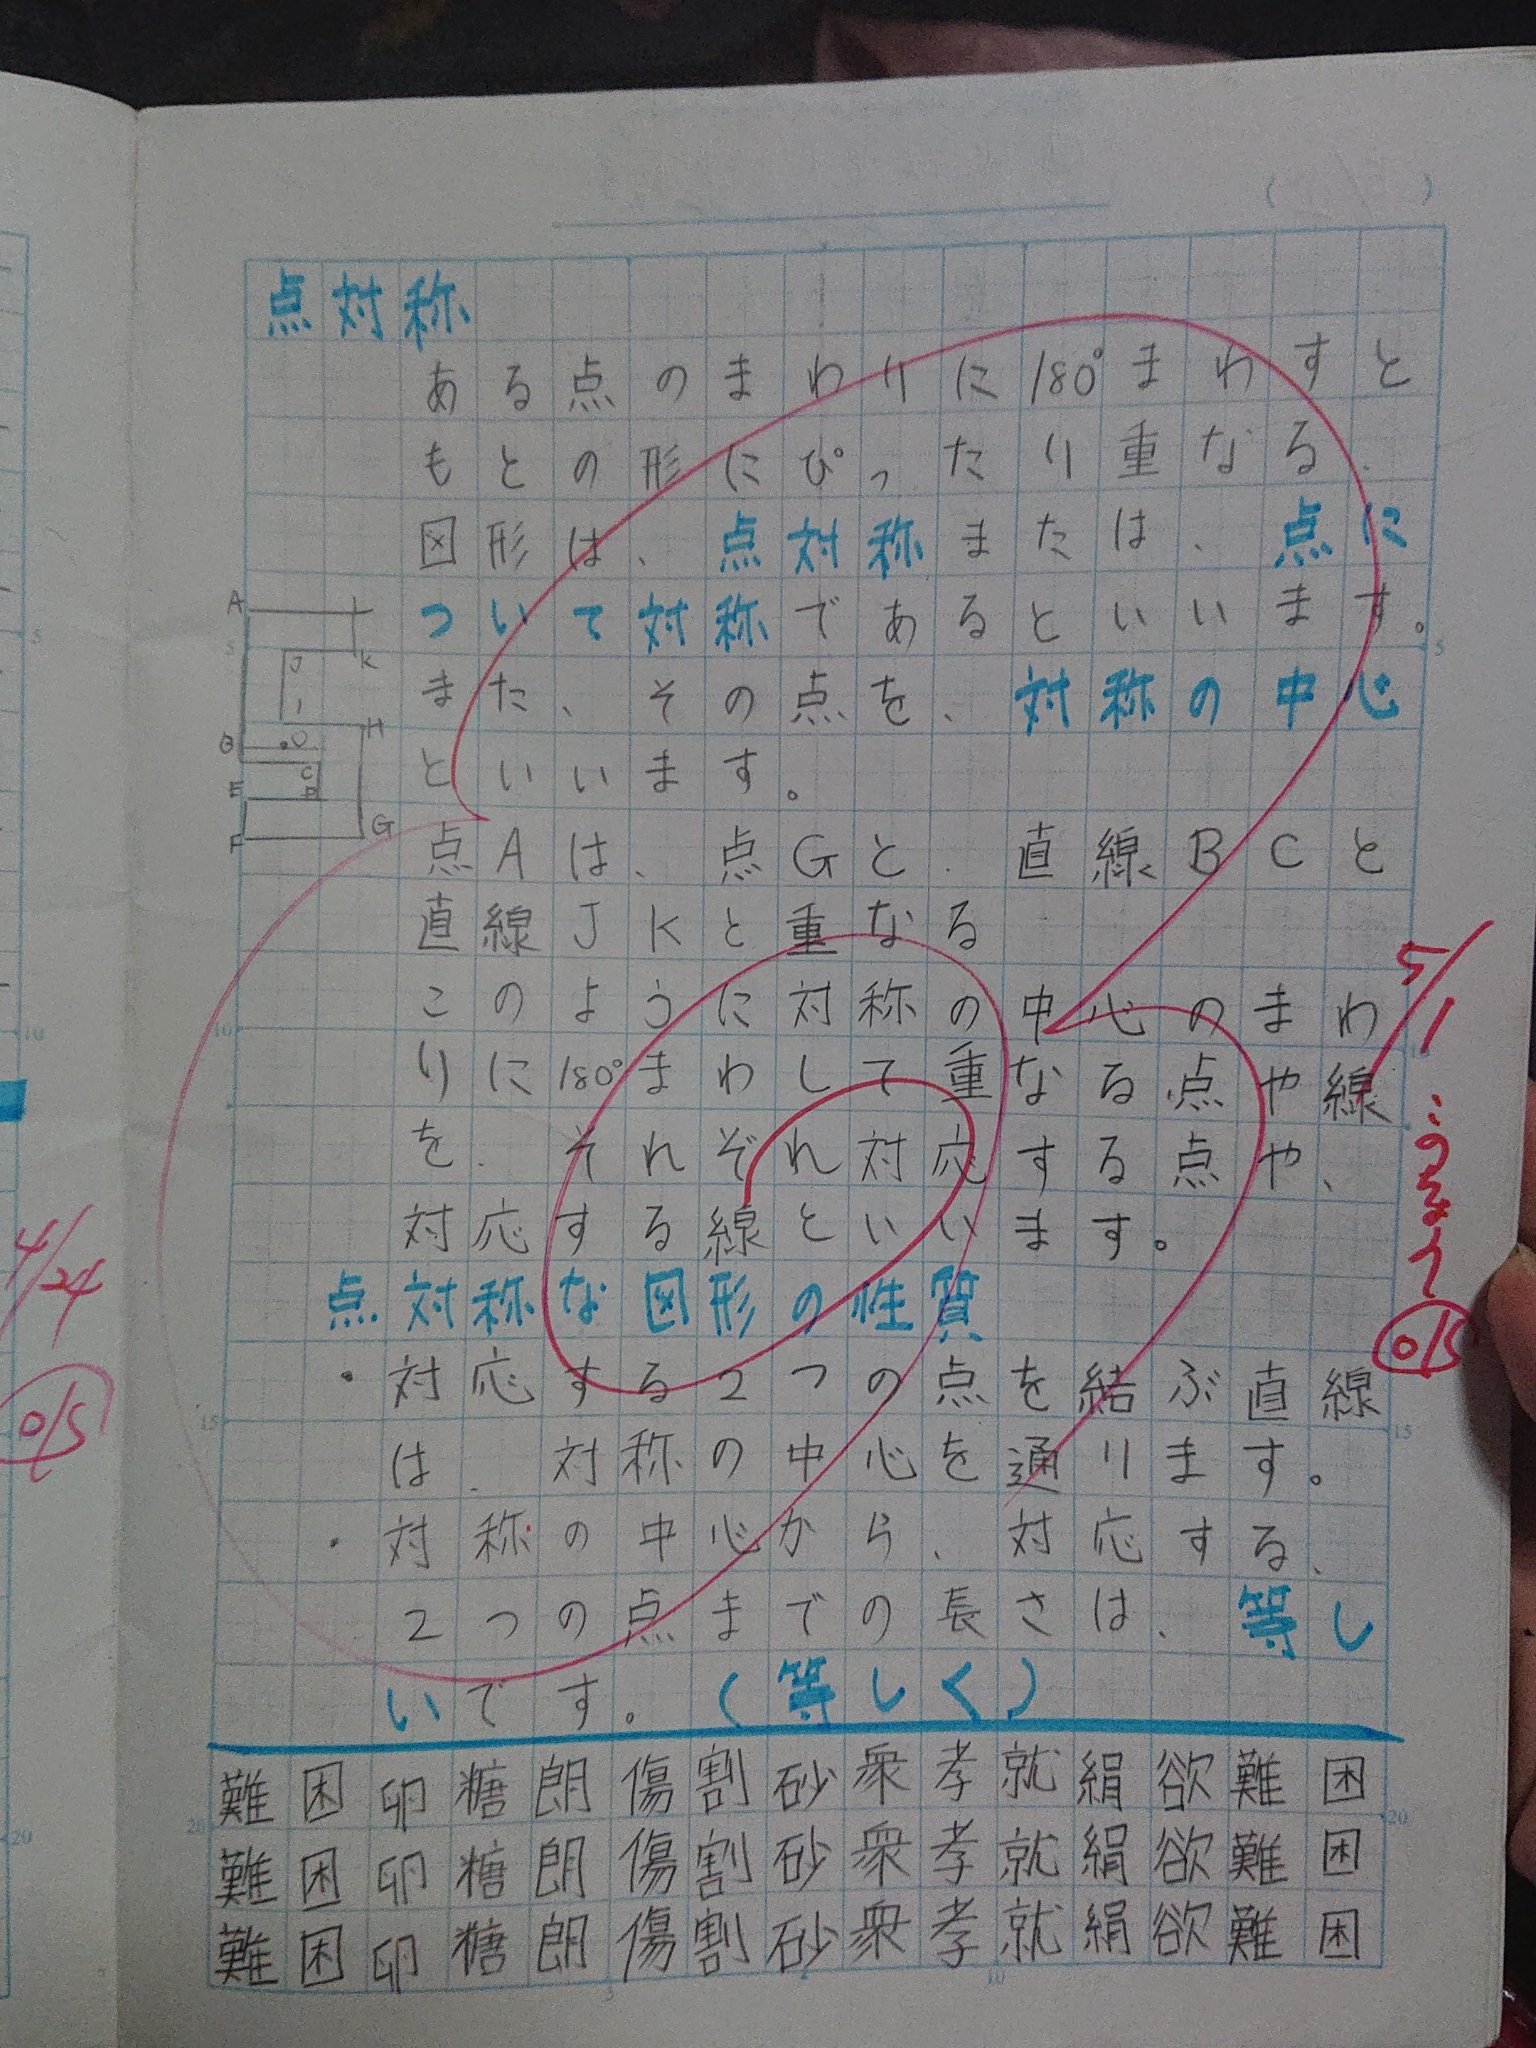 点対称
ある点のまわりに180°まわすと
もとの形にぴったり重なる、
図形は、点対称または、点に
ついて対称であるといいます。
また、その点を、対称の中心
といいます。
A
L
J
K
I
H
B
O
C
E
D
F
G
点Aは、点Gと、直線BCと
直線JKと重なる
このように対称の中心のまわ
りに180°まわして重なる点や線
を、それぞれ対応する点や、
対応する線といいます。
点対称な図形の性質
・対応する2つの点を結ぶ直線
は、対称の中心を通ります。
・対称の中心から、対応する、
2つの点までの長さは、等し
いです。(等しく)
難困卵糖朗傷割砂衆孝就絹欲難困
難困卵糖朗傷割砂衆孝就絹欲難困
難困卵糖朗傷割砂衆孝就絹欲難困
5/1
4/24